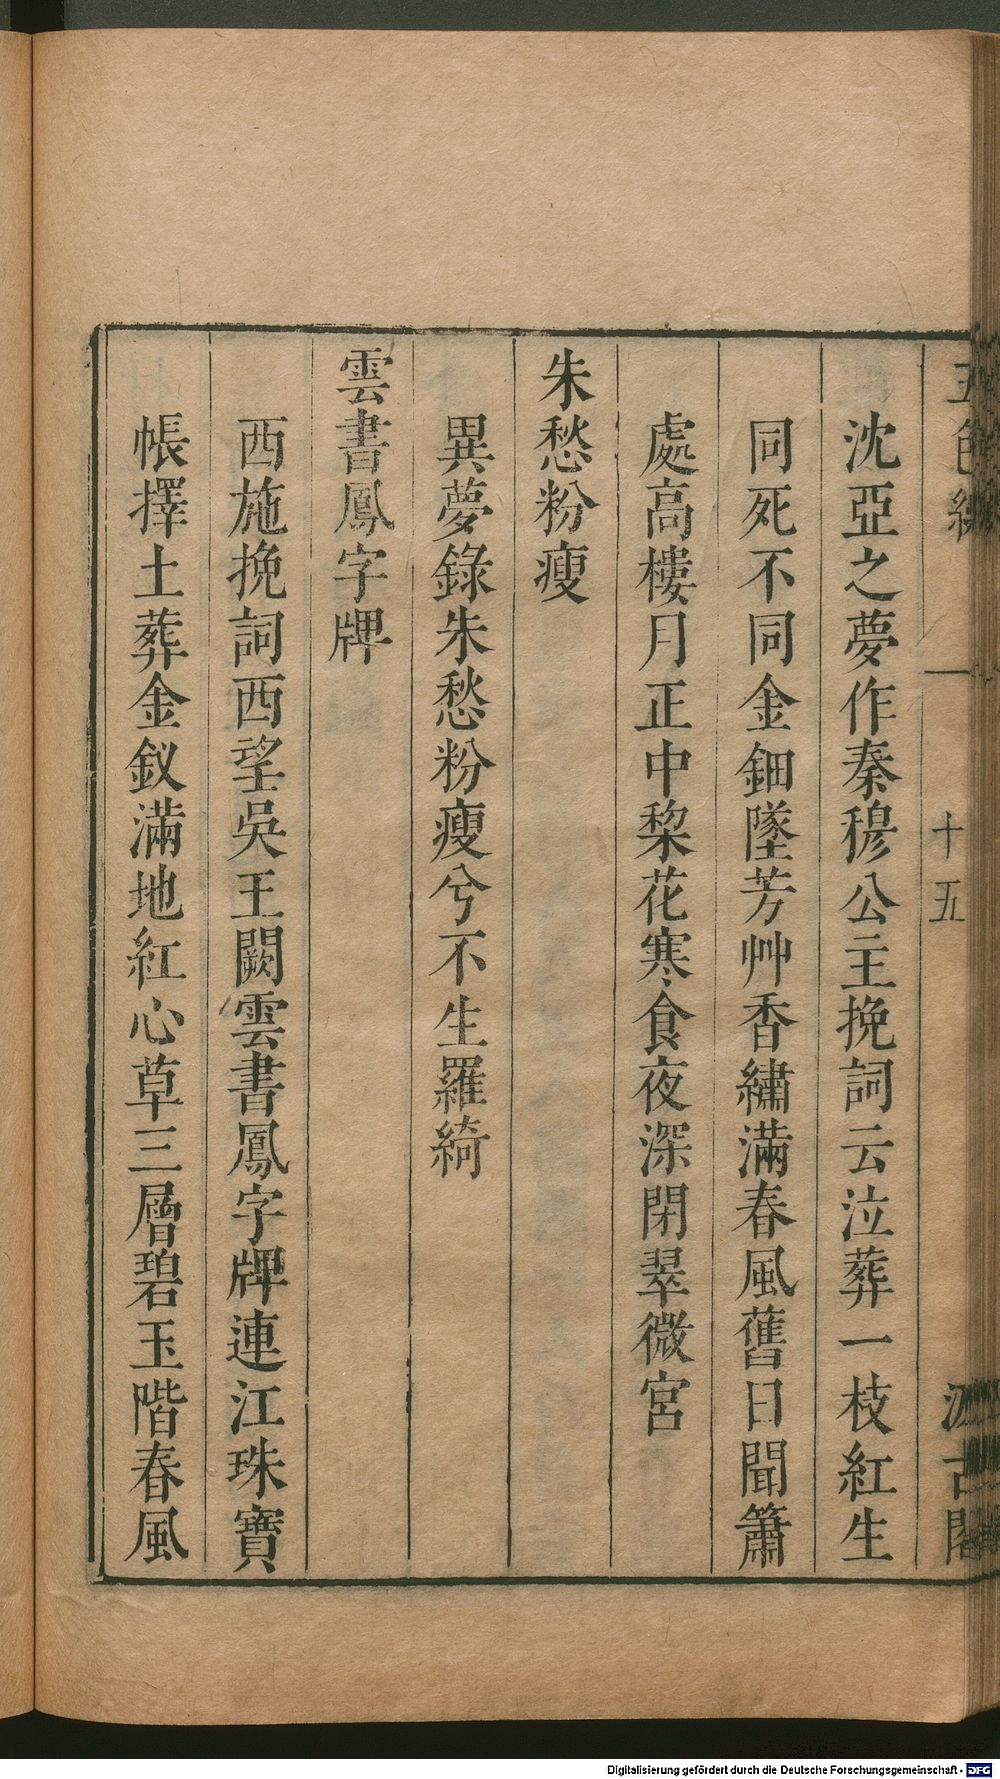 五色線 一 十五 汲古閣
沈亞之夢作秦穆公主挽詞云泣葬一枝紅生
同死不同金鈿墜芳艸香繡滿春風舊日聞簫
處高樓月正中棃花寒食夜深閉翠微宮
朱愁粉瘦
異夢錄朱愁粉瘦兮不生羅綺
雲書鳳字牌
西施挽詞西望吳王闕雲書鳳字牌連江珠寶
帳擇土葬金釵滿地紅心草三層碧玉階春風
Digitalisierung gefördert durch die Deutsche Forschungsgemeinschaft - DFG